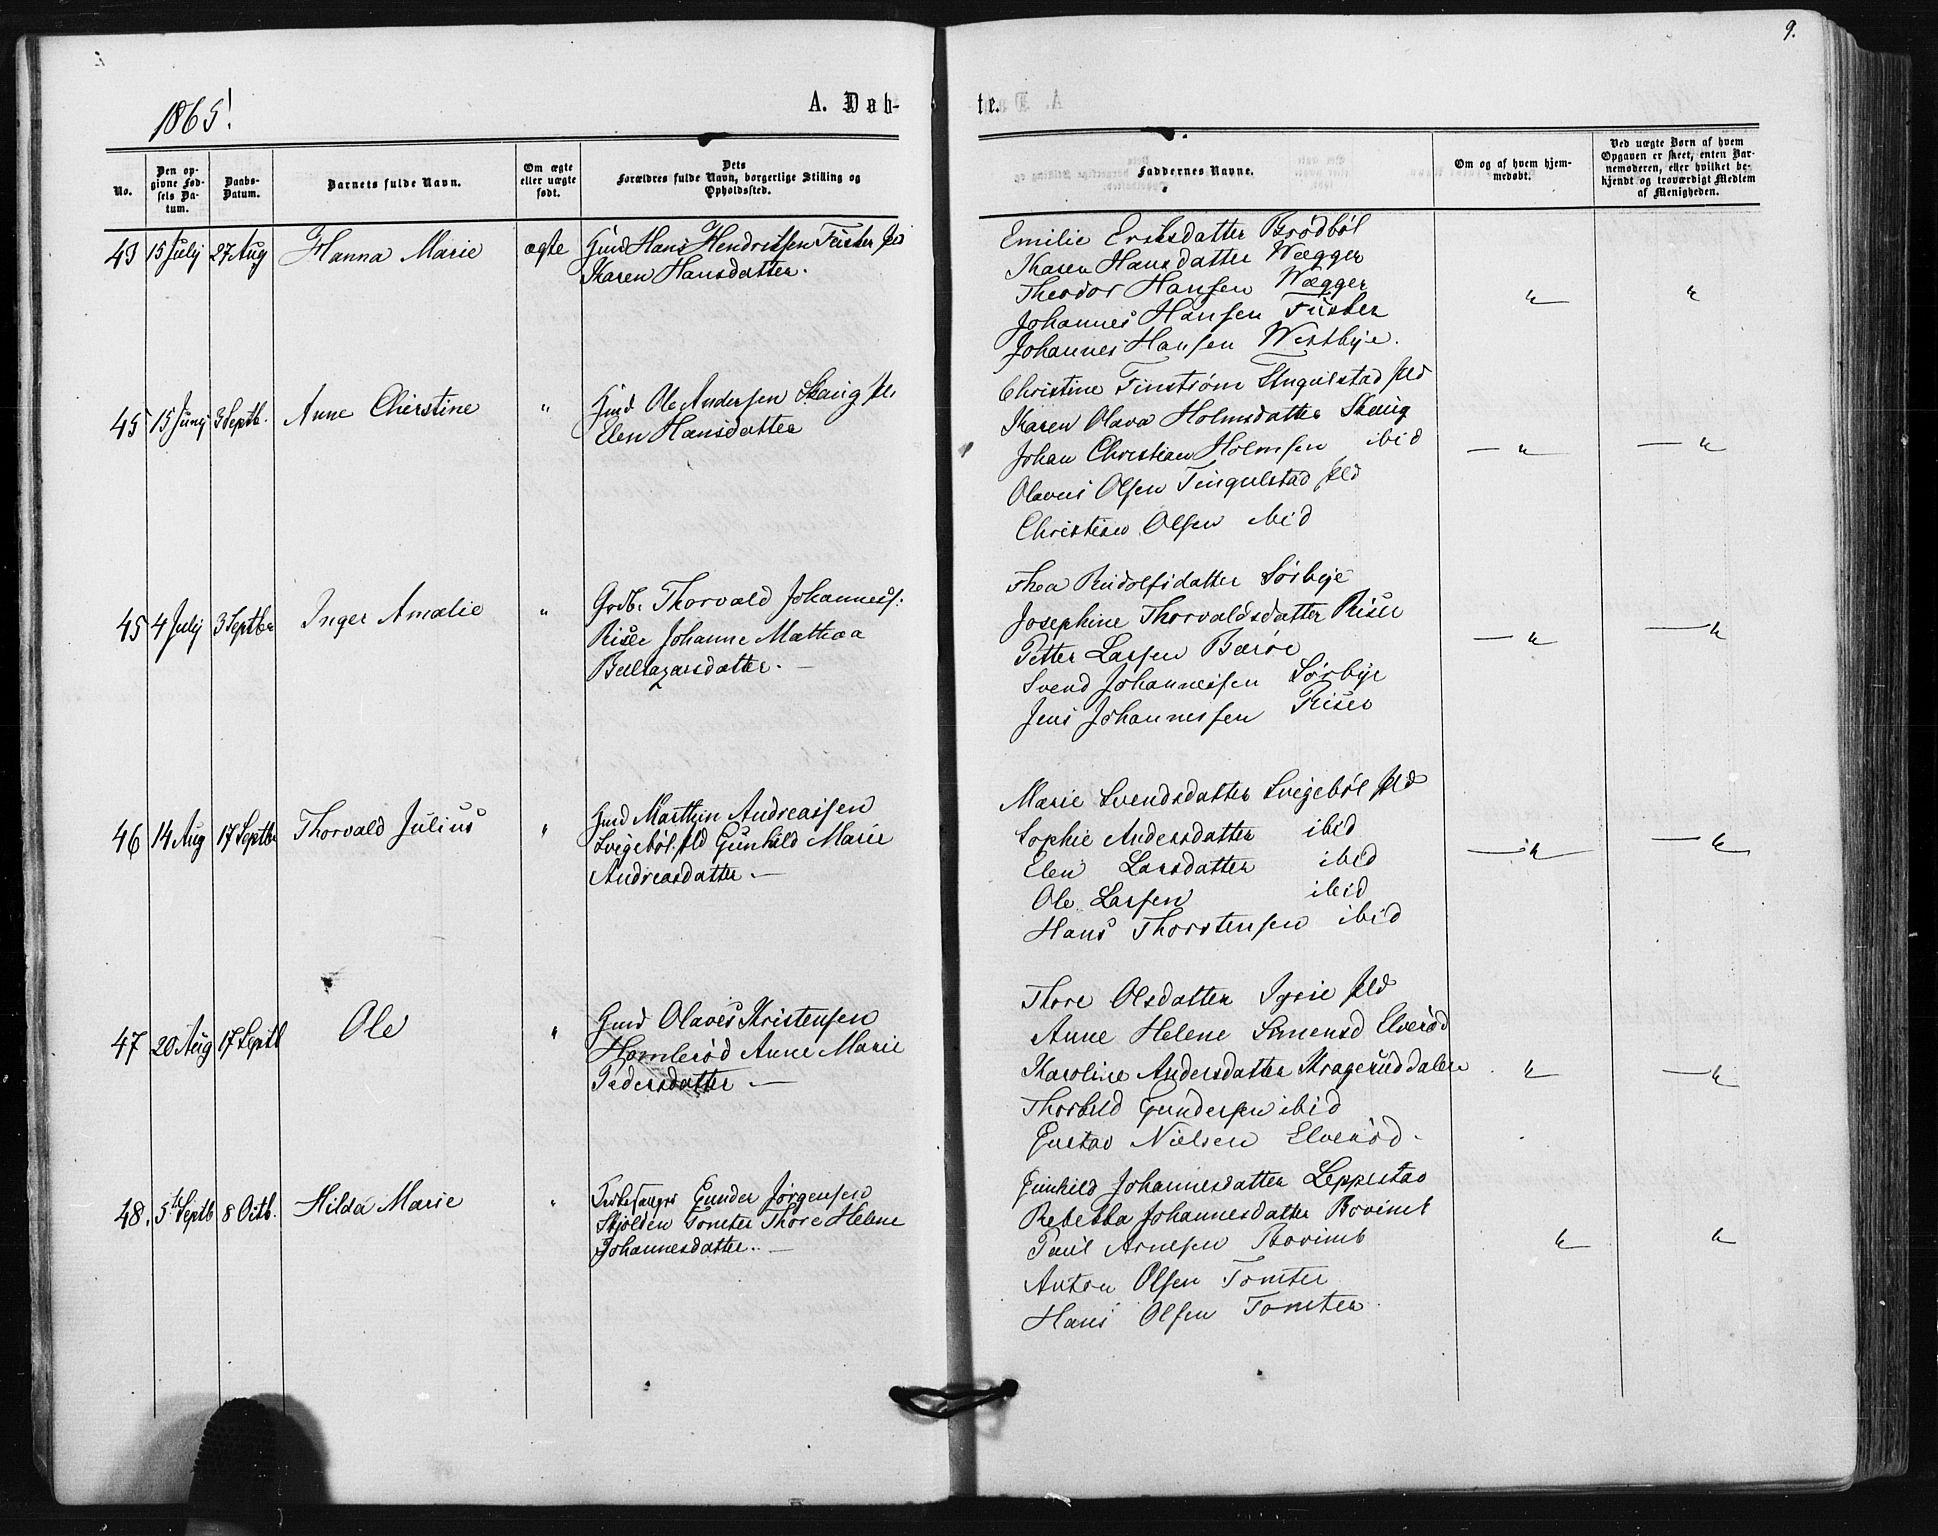 9.
1865!
A. Døb-
te.
No.
Den opgivne Fødsels Datum.
Daabs-Datum.
Barnets fulde Navn.
Om ægte eller uægte født.
Dets Forældres fulde Navn, borgerlige Stilling og Opholdssted.
Faddernes Navne.
Om og af hvem hjemmedøbt.
Ved uægte Børn af hvem Opgaven er skeet, enten Barnemoderen, eller hvilket bekjendt og troværdigt Medlem af Menigheden.
43 15 Julij 27 Aug Hanna Marie ægte Gmd Hans Hendriksen Fuster
Karen Hansdatter.
Emilie Eriksdatter Brødbøl
Karen Hansdatter Wægger
Theodor Hansen Wægger
Johannes Hansen Fuster
Johannes Hansen Westbye.
45 15 Junj 3 Septb. Anne Cherstine " Gmd Ole Andersen Skaug
Elen Hansdatter
Christine Finstrøm Tingulstad pld
Karen Olava Holmsdatter Skaug
Johan Christian Holmsen ibid
Olaves Olsen Tingulstad pld
Christian Olsen ibid
45 4 Julij 3 Septbr Inger Amalie " Grdb. Thorvald Johannesf:
Riser Johanne Mathea
Baltazarsdatter. —
Thea Rudolfsdatter Sørbye
Josephine Thorvaldsdatter Riser
Petter Larsen Bærøe
Svend Johannesen Sørbye
Jens Johannessen Riser
46 14 Aug 17 Septbr Thorvald Julius " Gmd Marthin Andreassen
Svigebøl pld Gunhild Marie
Andreasdatter. —
Marie Svendsdatter Svigebøl pld
Sophie Andersdatter ibid
Elen Larsdatter ibid
Ole Larsen ibid
Hans Thorstensen ibid
47 20 Aug 17 Septb Ole " Gmd Olaves Kristensen
Homlerød Anne Marie
Pedersdatter —
Thore Olsdatter pld
Anne Helene Simensd Elverød
Karoline Andersdatter Krageruddalen
Thorbild Gundersen ibid
Gustav Nielsen Elverød.
48. 5te Septb 8 Octb. Hilda Marie " Kirkesanger Gunder Jørgensen
Skjolden Tomter Thore Helene
Johannesdatter. —
Gunhild Johannesdatter Leppestad
Rebekka Johannesdatter Bovimb
Paul Arnesen Bovimb
Anton Olsen Tomter
Hans Olsen Tomter